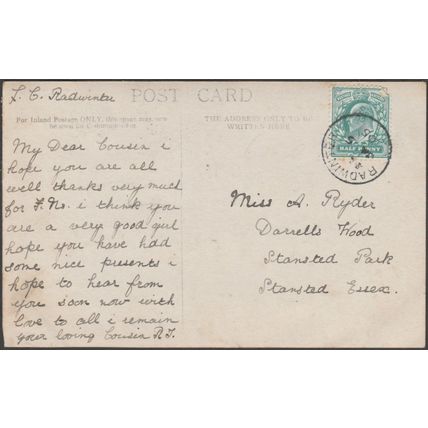 F. C. Radwinter
POST CARD
For Inland Postage ONLY, this space may now
be used for Communication.
THE ADDRESS ONLY TO BE
WRITTEN HERE
HALF PENNY
RADWINTER
My Dear Cousin i
hope you are all
well thanks very much
for F. Ns. i think you
are a very good girl
hope you have had
some nice presents i
hope to hear from
you soon now with
love to all i remain
your loving Cousin R.F.
Miss A. Ryder
Darrells Wood
Stansted Park
Stansted Essex.